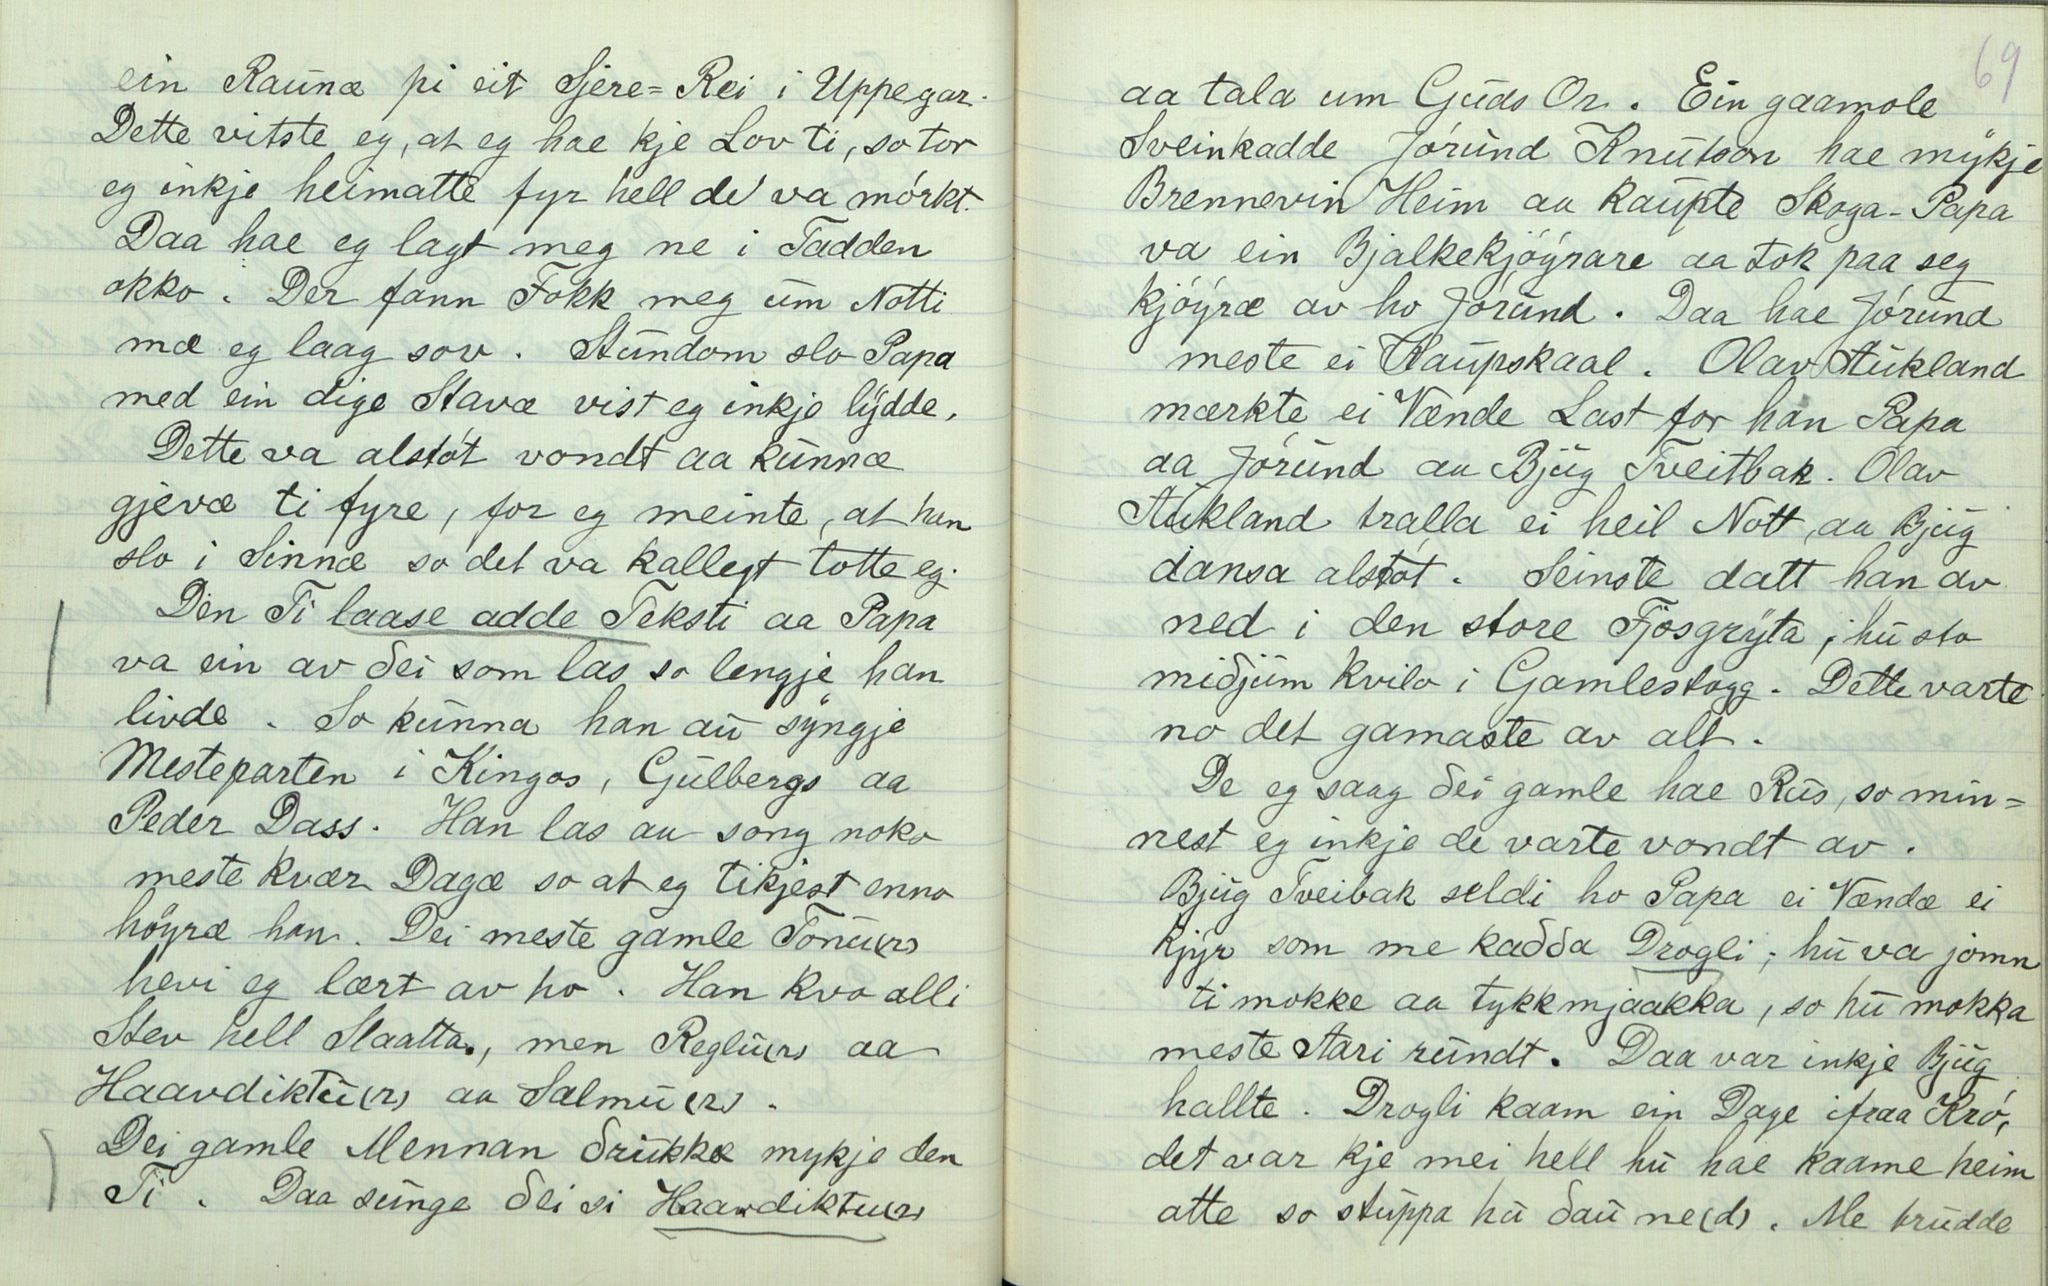 ein Raunæ pi eit Sjere= Rei i Uppegar.
Dette vitste eg, at eg hae kje Lov ti, so tor
eg inkje heimatte fyr hell de va mórkt.
Daa hae eg lagt meg ne i Tadden
okko. Der fann Fokk meg um Notti
mæ eg laag sov. Stundom slo Papa
med ein dige Stavæ vist eg inkje lydde.
Dette va alstót vondt aa kunnæ
gjevæ ti fyre, for eg meinte, at han
slo i Sinnæ so det va kallegt totte eg.
Den Ti laase adde Teksti aa Papa
va ein av dei som las so lengje han
livde. So kunna han au syngje
Mesteparten i Kingos, Gulbergs aa
Peder Dass. Han las au song noko
meste kvær Dagæ so at eg tikjest enno
höyræ han. Dei meste gamle Tonu(r)
hevi eg lært av ho. Han kvo alli
Stev hell Slaatta, men Reglu(r) aa
Haavdiktu(r) aa Salmu(r).
Dei gamle Mennan drukke mykje den
Ti. Daa sunge dei si Haavdiktu(r)
69
aa tala um Guds Or. Ein gaamole
Sveinkadde Jórund Knutson hae mykje
Brennevin Heim aa kaupte Skoga- Papa
va ein Bjalkekjóyrare aa tok paa seg
kjóyræ av ho Jórund. Daa hae Jórund
meste ei Kaupskaal. Olav Aukland
mærkte ei Vænde Last for han Papa
aa Jórund au Bjug Tveitbak. Olav
Aukland tralla ei heil Nott, aa Bjug
dansa alstót. Seinste datt han av
ned i den store Fjósgryta, hu sto
midjum kvilo i Gamlestogg. Dette varte
no det gamaste av alt.
De eg saag dei gamle hae Rus, so min=
nest eg inkje de varte vondt av.
Bjug Tveibak seldi ho Papa ei Vændæ ei
kjyr som me kadda Drogli; hu va jomn
ti mokke aa tykkmjaakka, so hu mokka
meste Aari rundt. Daa var inkje Bjug
hallte. Drogli kaam ein Dage ifraa Kró,
det var kje mei hell hu hae kaame heim
atte so stuppa hu dau ne(d). Me trudde